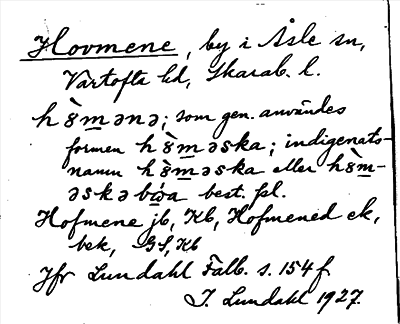 Hovmene, by i Åsle sn,
Vartofta hd, Skarab. l.
hò̤mənə; som gen. användes
formen hò̤məska; indigenats-
namn hò̤məska eller hò̤m-
əskəbo̤a best. pl.
Hofmene jb, Kb, Hofmened ek,
bek, GS, Kb
Jfr Lundahl Falb. s. 154 f.
I. Lundahl 1927.